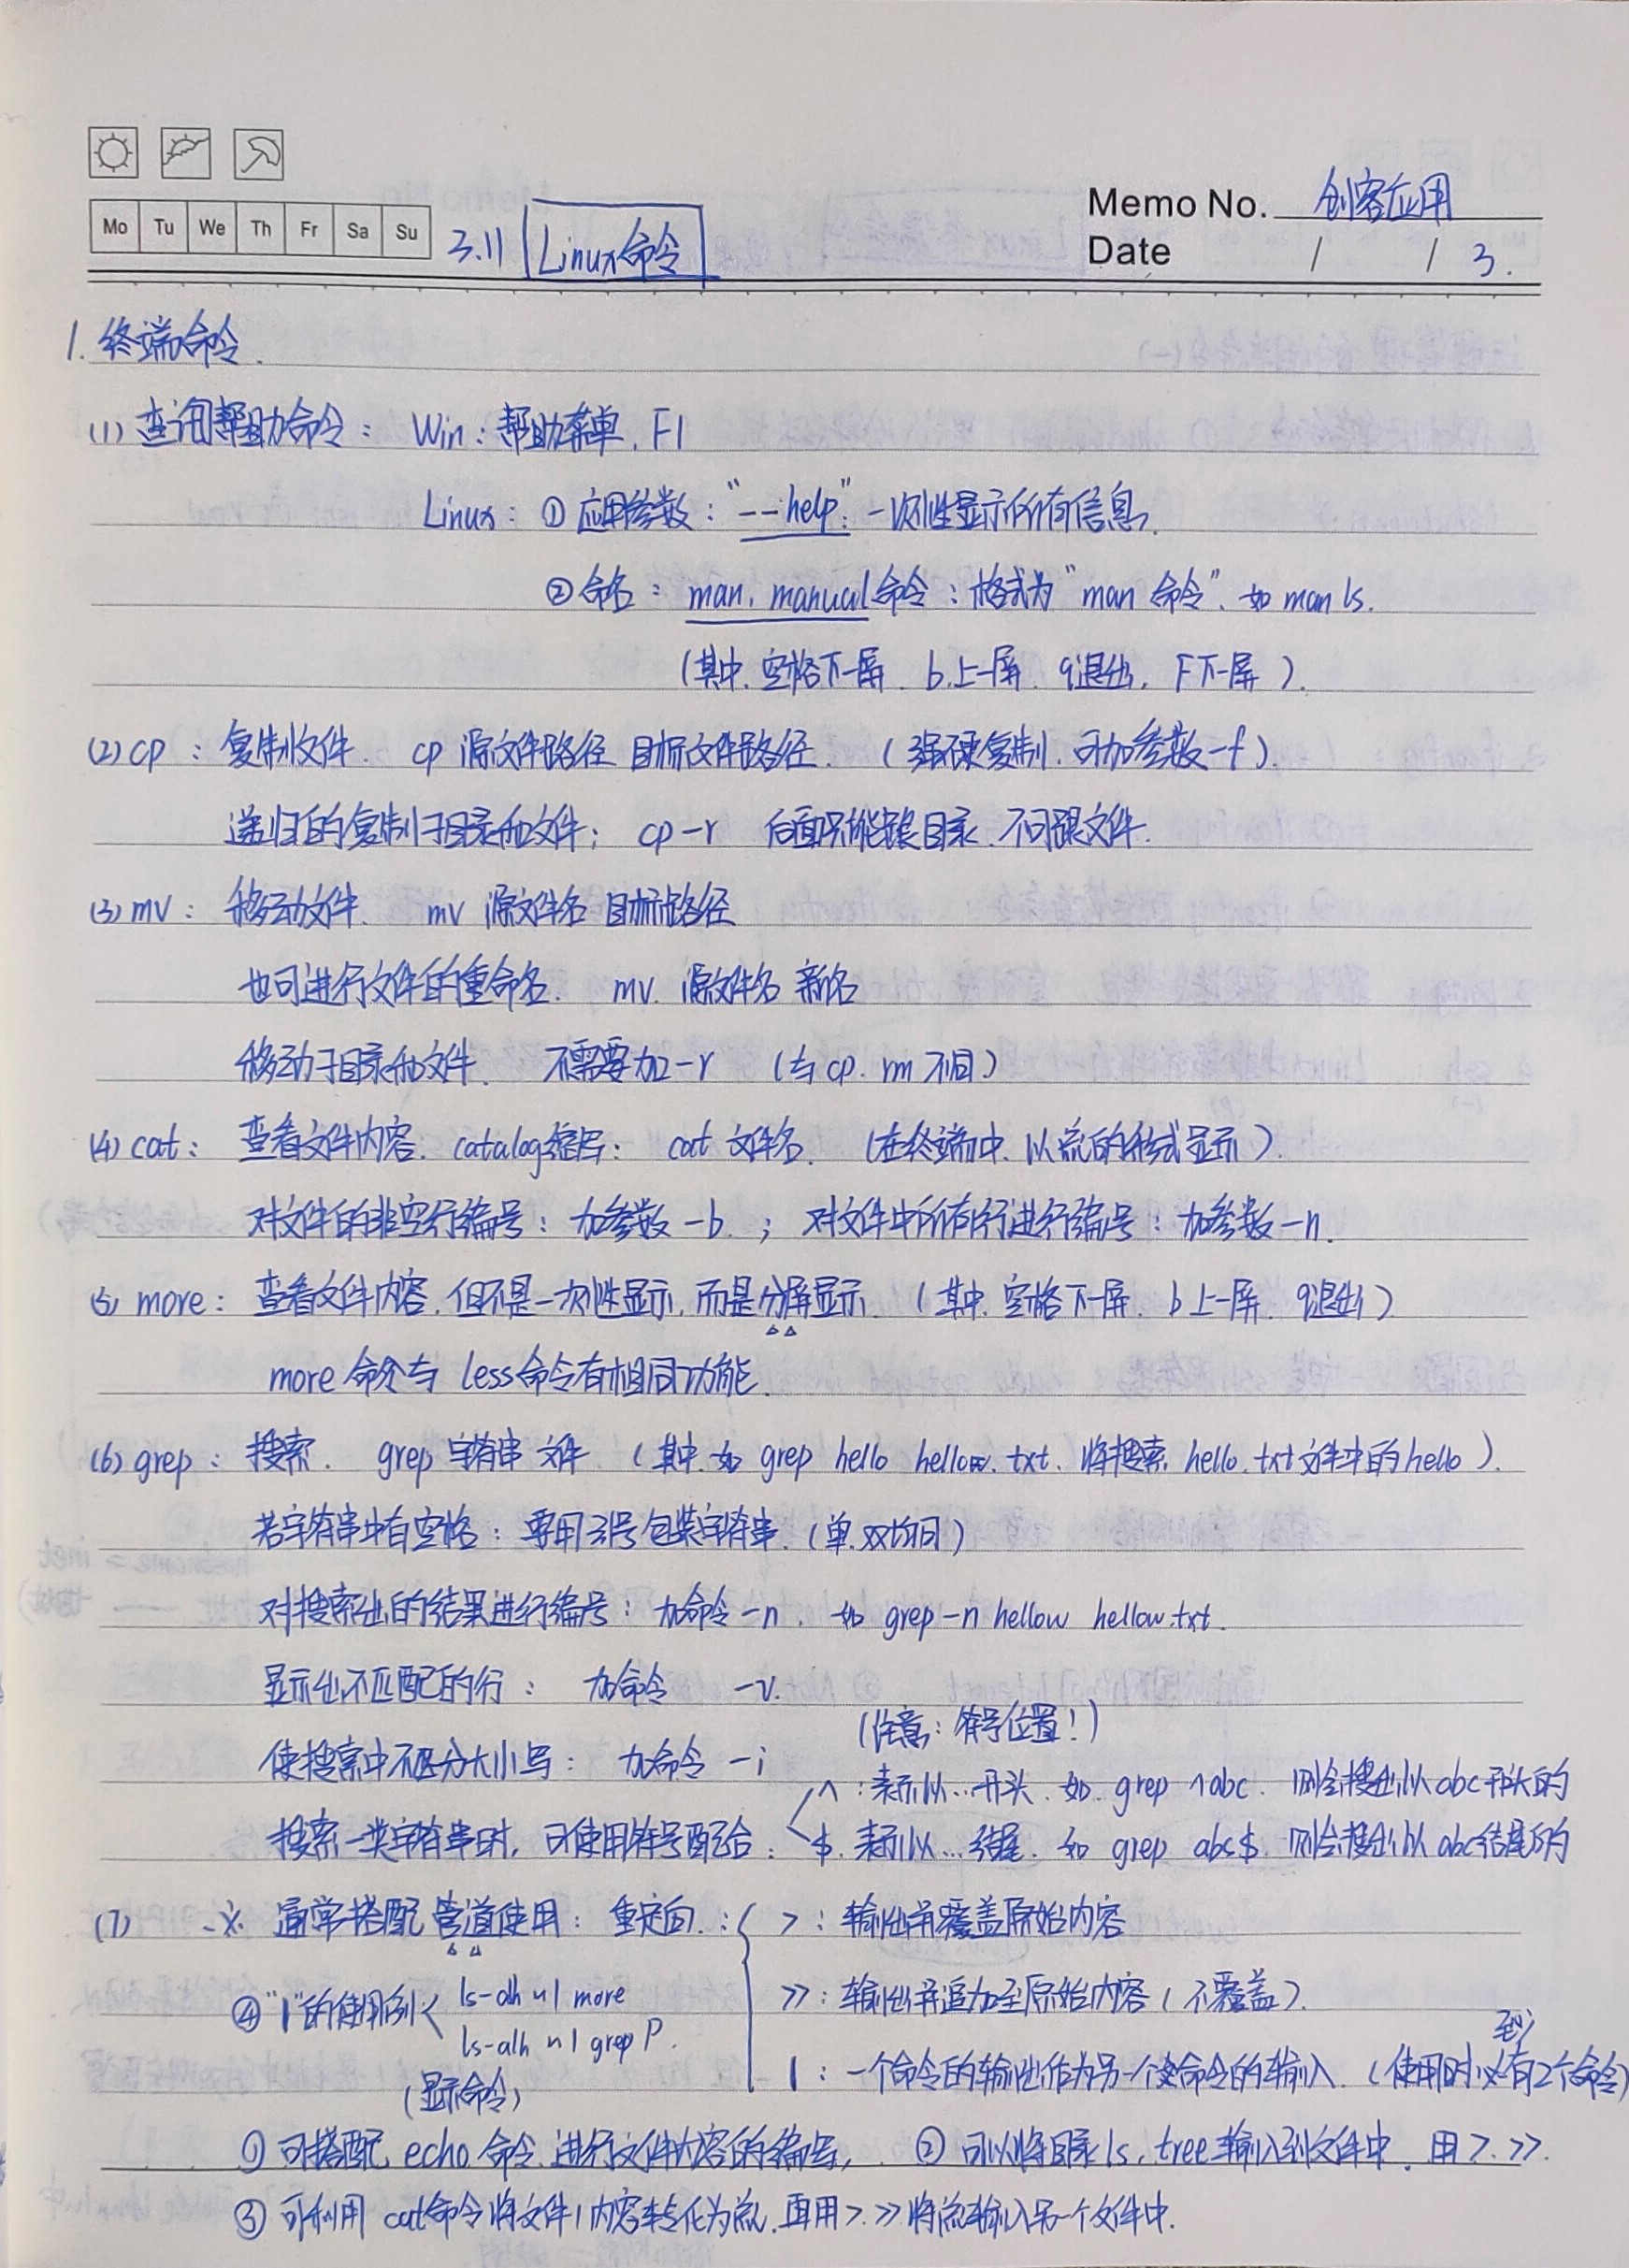 Memo No. 创客应用
Mo Tu We Th Fr Sa Su 3.11 Linux命令
Date / / 3.
1. 终端命令.
(1) 查询帮助命令: Win: 帮助菜单, F1
Linux: ① 应用参数: "--help": 一次性显示所有信息.
② 命名: man, manual命令: 格式为 "man 命令". 如 man ls.
(其中. 空格下一屏. b上一屏. q退出. F下一屏).
(2) cp: 复制文件. cp 源文件路径 目标文件路径. (强硬复制. 可加参数-f).
递归的复制子目录和文件: cp -r 后面只能跟目录. 不可跟文件.
(3) mv: 移动文件. mv 源文件名 目标路径
也可进行文件的重命名. mv. 源文件名 新名
移动子目录和文件. 不需要加-r (与cp. rm不同)
(4) cat: 查看文件内容. catalog缩写: cat 文件名. (在终端中. 以流的形式显示).
对文件的非空行编号: 加参数 -b. ; 对文件中所有行进行编号: 加参数 -n.
(5) more: 查看文件内容, 但不是一次性显示, 而是分屏显示. (其中. 空格下一屏. b上一屏. q退出)
more 命令与 less命令有相同功能.
(6) grep: 搜索. grep 字符串 文件 (其中. 如 grep hello hellow.txt. 将搜索. hello.txt文件中的hello).
若字符串中有空格: 要用引号包装字符串. (单.双均可)
对搜索出的结果进行编号: 加命令 -n. 如 grep -n hellow hellow.txt.
显示出不匹配的行: 加命令 -v.
(注意: 符号位置!)
使搜索中不区分大小写: 加命令 -i
^: 表示以...开头. 如. grep ^abc. 则会搜出以abc开头的
搜索一类字符串时, 可使用符号配合: $. 表示以...结尾. 如 grep abc$. 则会搜出以abc结尾的
(7) ※ 通常搭配管道使用: 重定向: { >: 输出并覆盖原始内容
④ "|"的使用例 < ls-alh ~ | more
>>: 输出并追加至原始内容 (不覆盖).
ls-alh ~ | grep P.
至少
|: 一个命令的输出作为另一个命令的输入. (使用时必有2个命令)
(显示命令)
① 可搭配 echo 命令. 进行文件内容的编号, ② 可以将目录ls, tree输入到文件中. 用>. >>.
③ 可利用 cat命令将文件1内容转化为流. 再用>. >>将流输入另一个文件中.